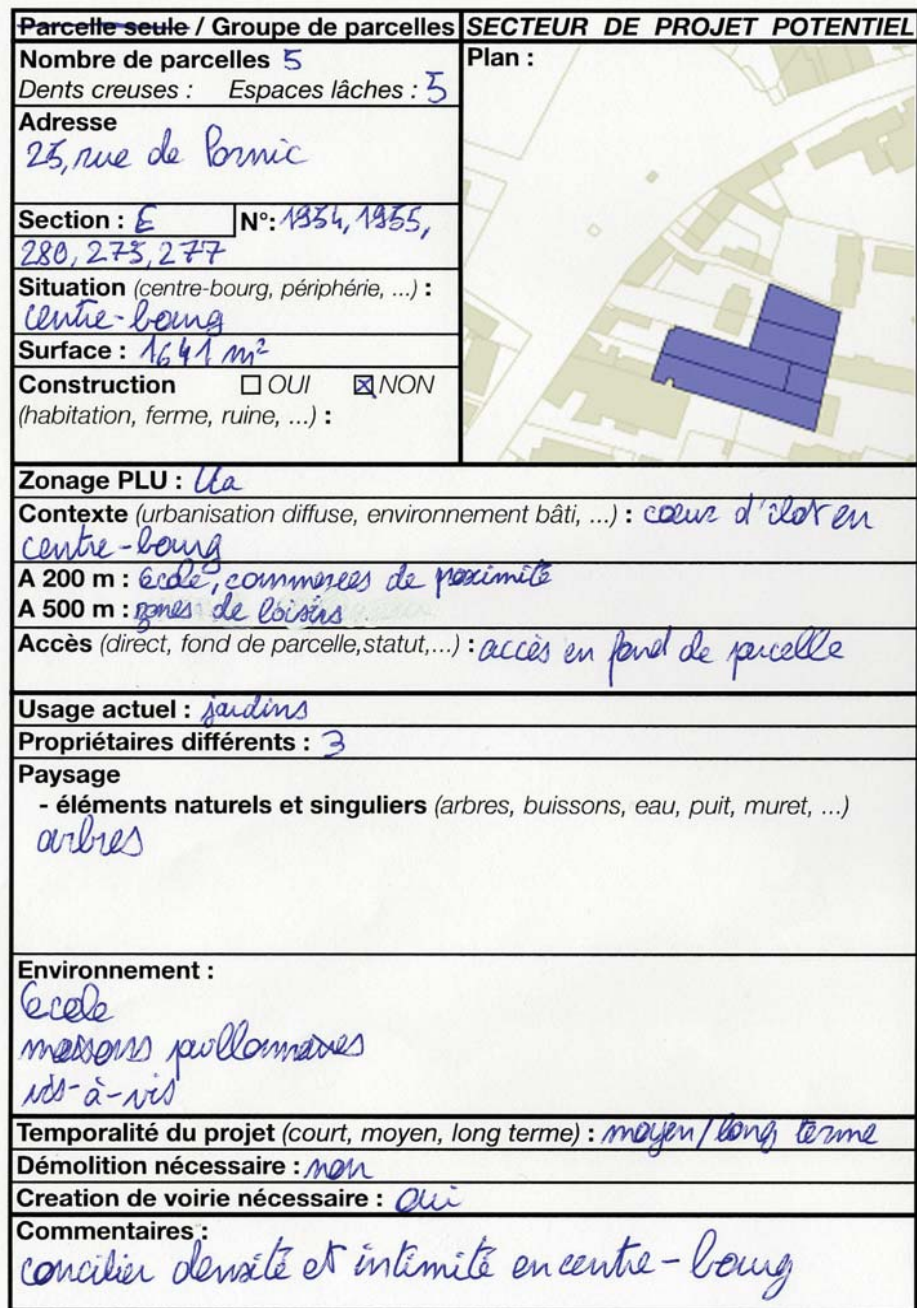 Parcelle seule / Groupe de parcelles
SECTEUR DE PROJET POTENTIEL
Nombre de parcelles 5
Dents creuses : Espaces lâches : 5
Adresse
25, rue de Pornic
Section : E N°: 1954, 1955,
280, 275, 277
Situation (centre-bourg, périphérie, ...) :
centre-bourg
Surface : 1641 m²
Construction ☐ OUI ☒ NON
(habitation, ferme, ruine, ...) :
Plan :
Zonage PLU : Ua
Contexte (urbanisation diffuse, environnement bâti, ...) : coeur d'ilot en
centre-bourg
A 200 m : école, commerces de proximité
A 500 m : zones de loisirs
Accès (direct, fond de parcelle,statut,...) : accès en fond de parcelle
Usage actuel : jardins
Propriétaires différents : 3
Paysage
- éléments naturels et singuliers (arbres, buissons, eau, puit, muret, ...)
arbres
Environnement :
école
maisons pavillonnaires
vis-à-vis
Temporalité du projet (court, moyen, long terme) : moyen/long terme
Démolition nécessaire : non
Creation de voirie nécessaire : oui
Commentaires :
concilier densité et intimité en centre-bourg